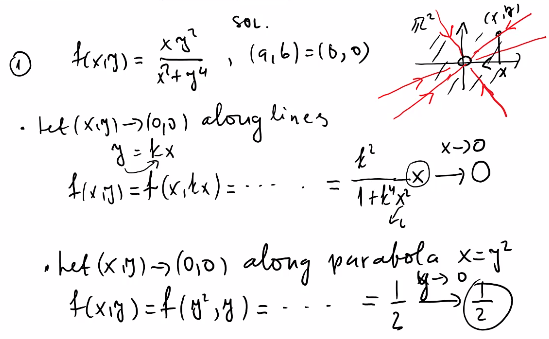 SOL.
① f(x,y) = xy²/(x²+y⁴) , (a,b)=(0,0)
ℝ² (x,y) x
• Let (x,y)→(0,0) along lines
y = kx
f(x,y) = f(x,kx) = ⋯⋯ = k²/(1+k⁴x²) x →0 x→0
• Let (x,y)→(0,0) along parabola x=y²
f(x,y) = f(y²,y) = ⋯⋯ = 1/2 →1/2 y→0